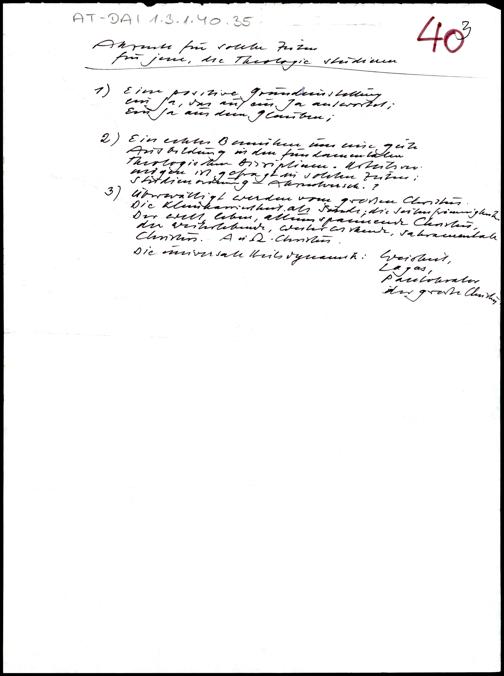 AT-DAI 1.3.1.40.35
40 3
Akzente für solche Zeiten
für jene, die Theologie studieren
1) Eine positive Grundeinstellung
ein Ja, das auf ein Ja antwortet;
Ein Ja aus dem Glauben;
2) Ein echtes Bemühen um eine gute
Ausbildung in den fundamentalen
Theologischen Disziplinen.
ist gefragt in solchen Zeiten;
Studienordnung - ?
3) Überwältigt werden vom großen Christus.
Die als Sünde, die
Der Welt, Leben, alles umspannende Christus,
der weiterlebende, weiterwirkende, sakramentale
Christus. A u Ω - Christus.
Die universale Heilsdynamik: Weisheit,
Logos,
Pantokrator
der große Christus